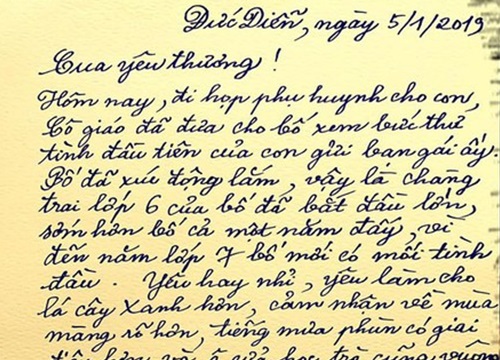 Đức Diễn, ngày 5/1/2019
Cua yêu thương !
Hôm nay, đi họp phụ huynh cho con,
Cô giáo đã đưa cho bố xem bức thư
tình đầu tiên của con gửi bạn gái ấy.
Bố đã xúc động lắm, vậy là chàng
trai lớp 6 của bố đã bắt đầu lớn,
sớm hơn bố cả một năm đấy, vì
đến năm lớp 7 bố mới có mối tình
đầu. Yêu hay nhỉ, yêu làm cho
lá cây xanh hơn, cảm nhận về mùa
màng rõ hơn, tiếng mưa phùn có giai